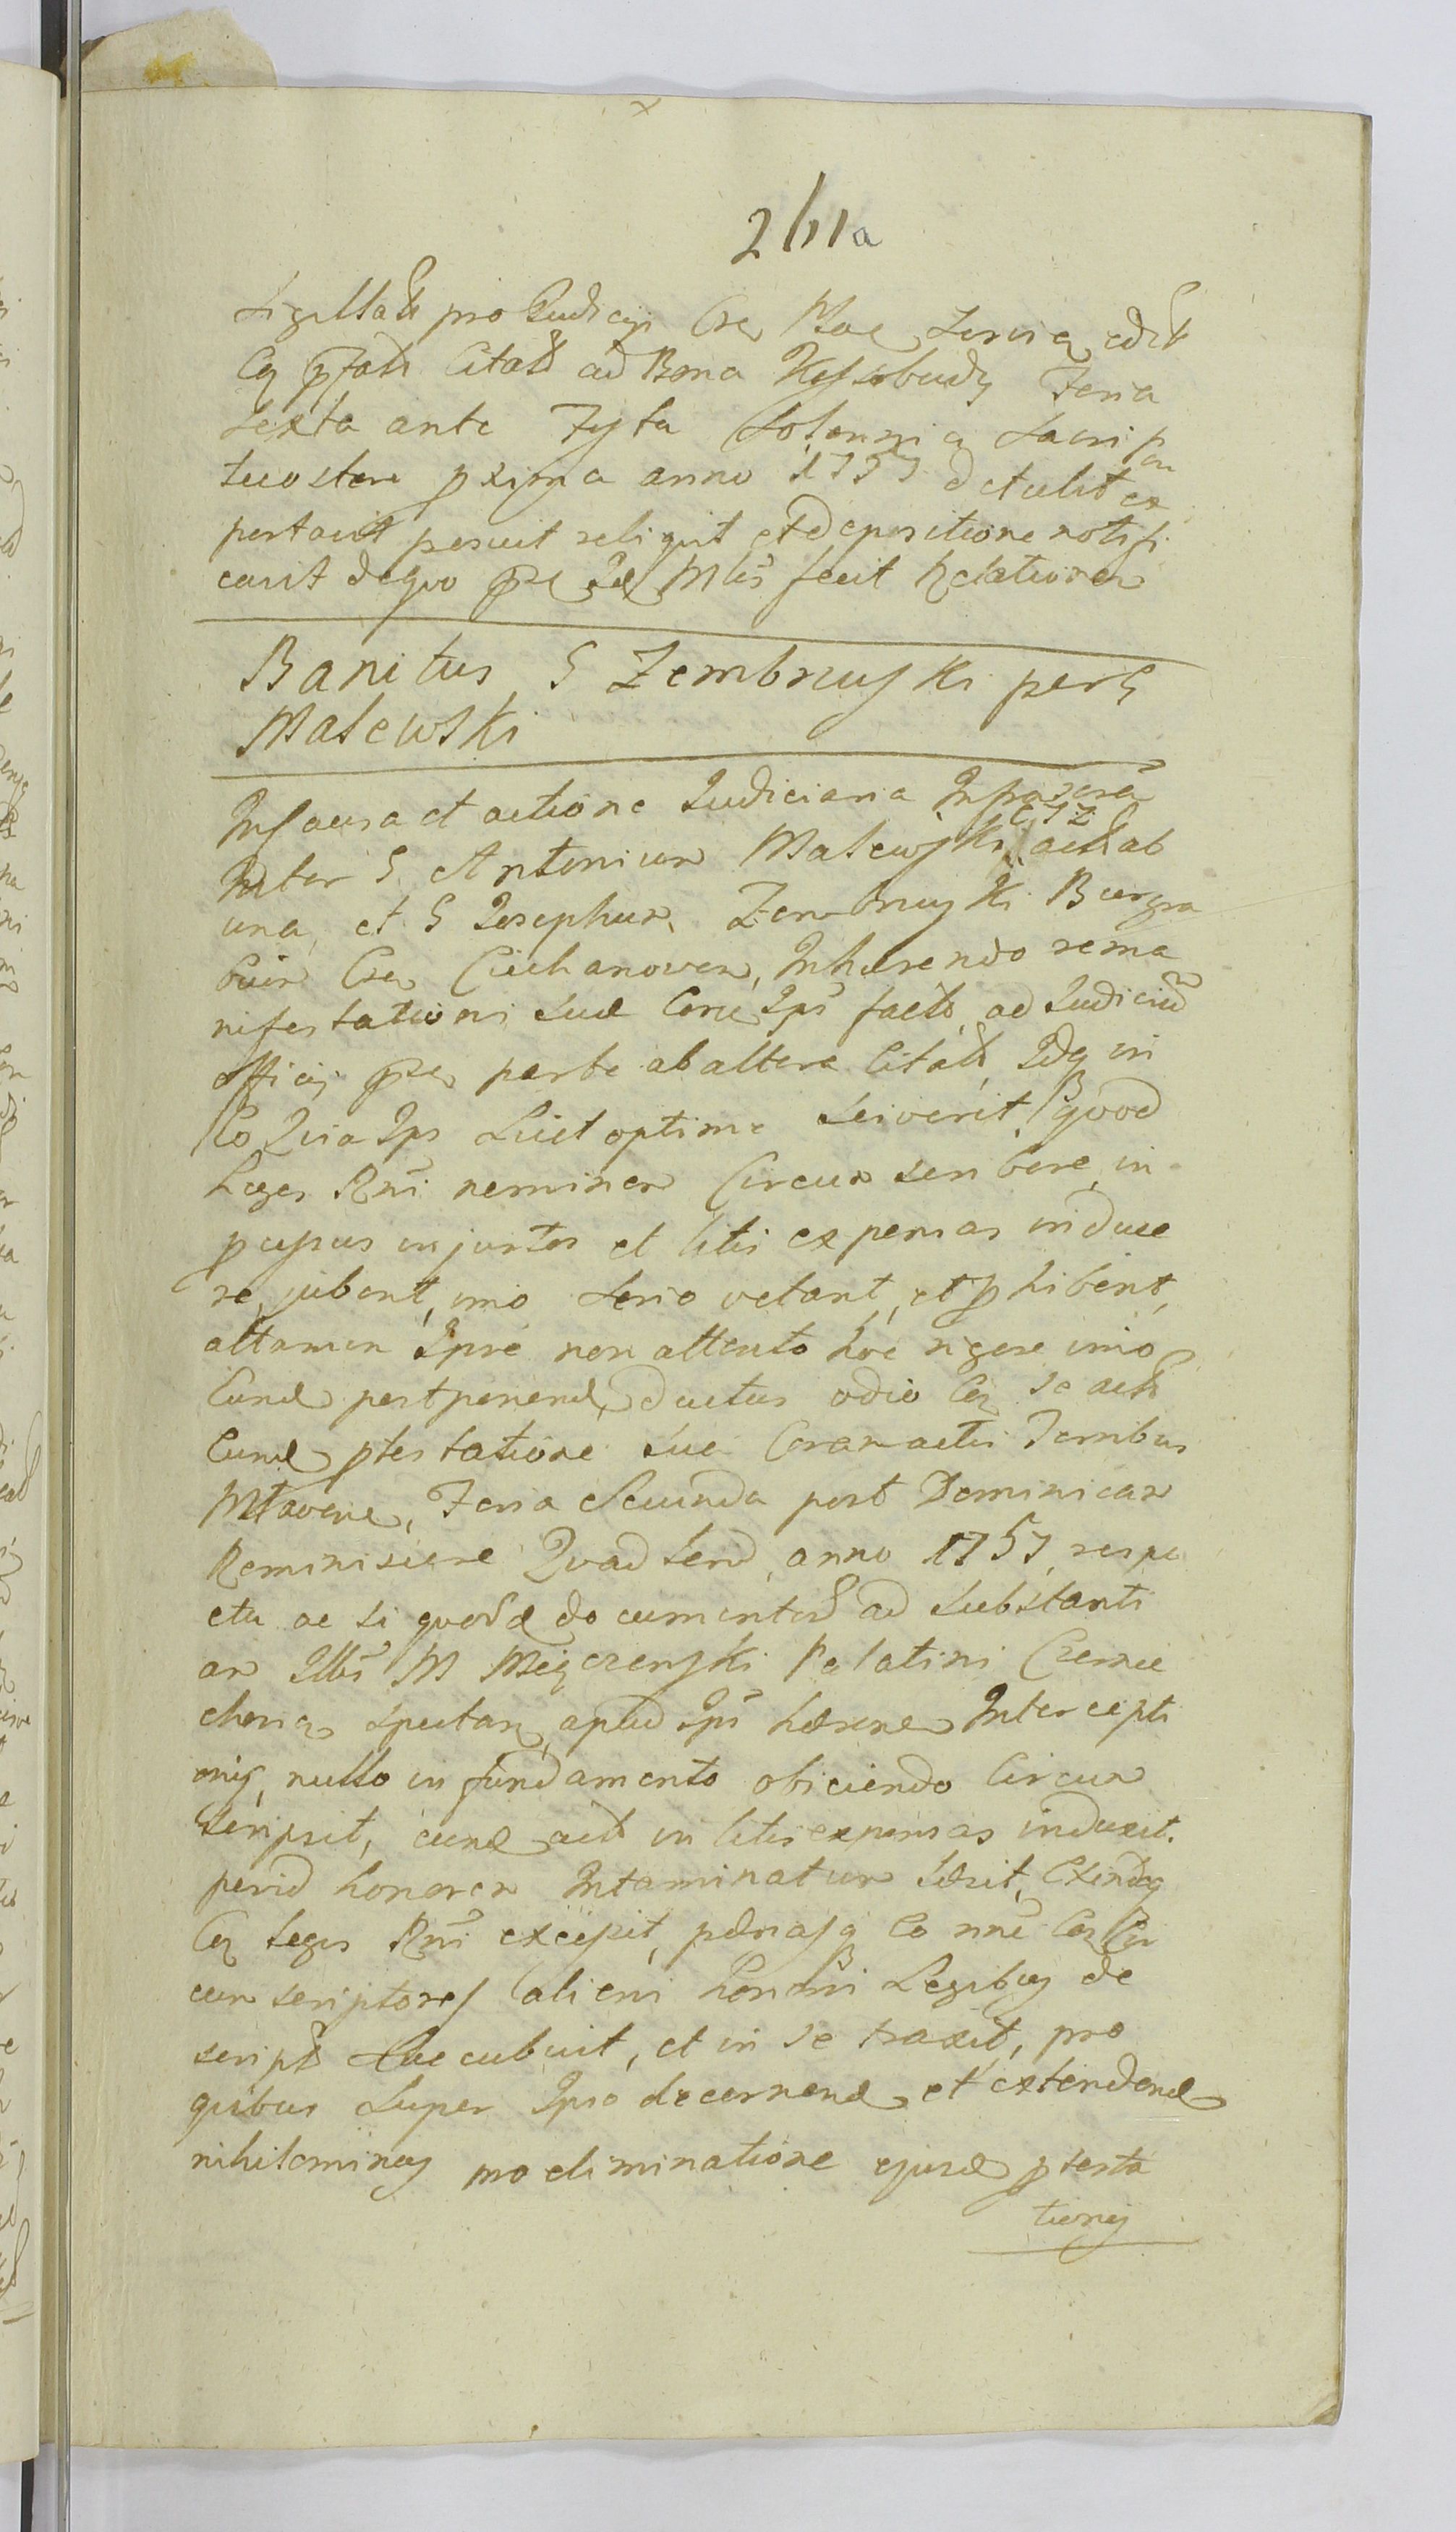 261a
Sigillatt pro Judicijs Cse Mae Zervia edit
Cq pfatt Citatt ad Bona Kossobudy Feria
Sexta ante Festa Solennia Sacri pa
tuostere pxima anno 1757 detulit ex
portavit posuit reliquit et depositione notifi
cavit de quo pse Idẽ Mlis fecit Relationem
Banitus G Zembrusski per G
Malewski
In causa et actione Judiciaria Infrascra
Inter G Antonium Malewski actt ab
una, et G Josephum Zembrusski Burgra
bium Cse Ciechanoven, Inhærendo rema
nifestationi suæ Coru Ips factt, ad Judiciũ
officij pse parte ab altera Citatt, Idq in
Eo Quia Ips Licet optime sciverit, quod
Leges Rni neminem Circum scribere, in
pcusus injustos et litis expensas induce
re, jubent, imo serio vetant, et phibent,
attamen Ipse non attento hoc rigore imo
Eund postponend, ductus odio Cq se actt
Eund ptestatione sua Coram actis Terribus
Mlavene, Feria Secunda post Dominicam
Reminiscere Quadserd, anno 1757, respe
ctu ac si quord documentord ad substanti
am Illis M Miączenski Palatini Czernie
choviæ spectan, apud Ips hærene Intercepti
onis, nullo in fundamento obiciendo Circum
scripsit, eund actt in litis expensas induxit.
perid honorem Intaminatum læsit, Exindeq
Cq leges Rni excessit, pænasq Eo nne Cq Cir
cumscriptores alieni honoris Legibus de
scriptt succubuit, et in se traxit, pro
quibus super Ipso decernend et extendend
nihilominus pro eliminatione ejusd ptesta
tionis